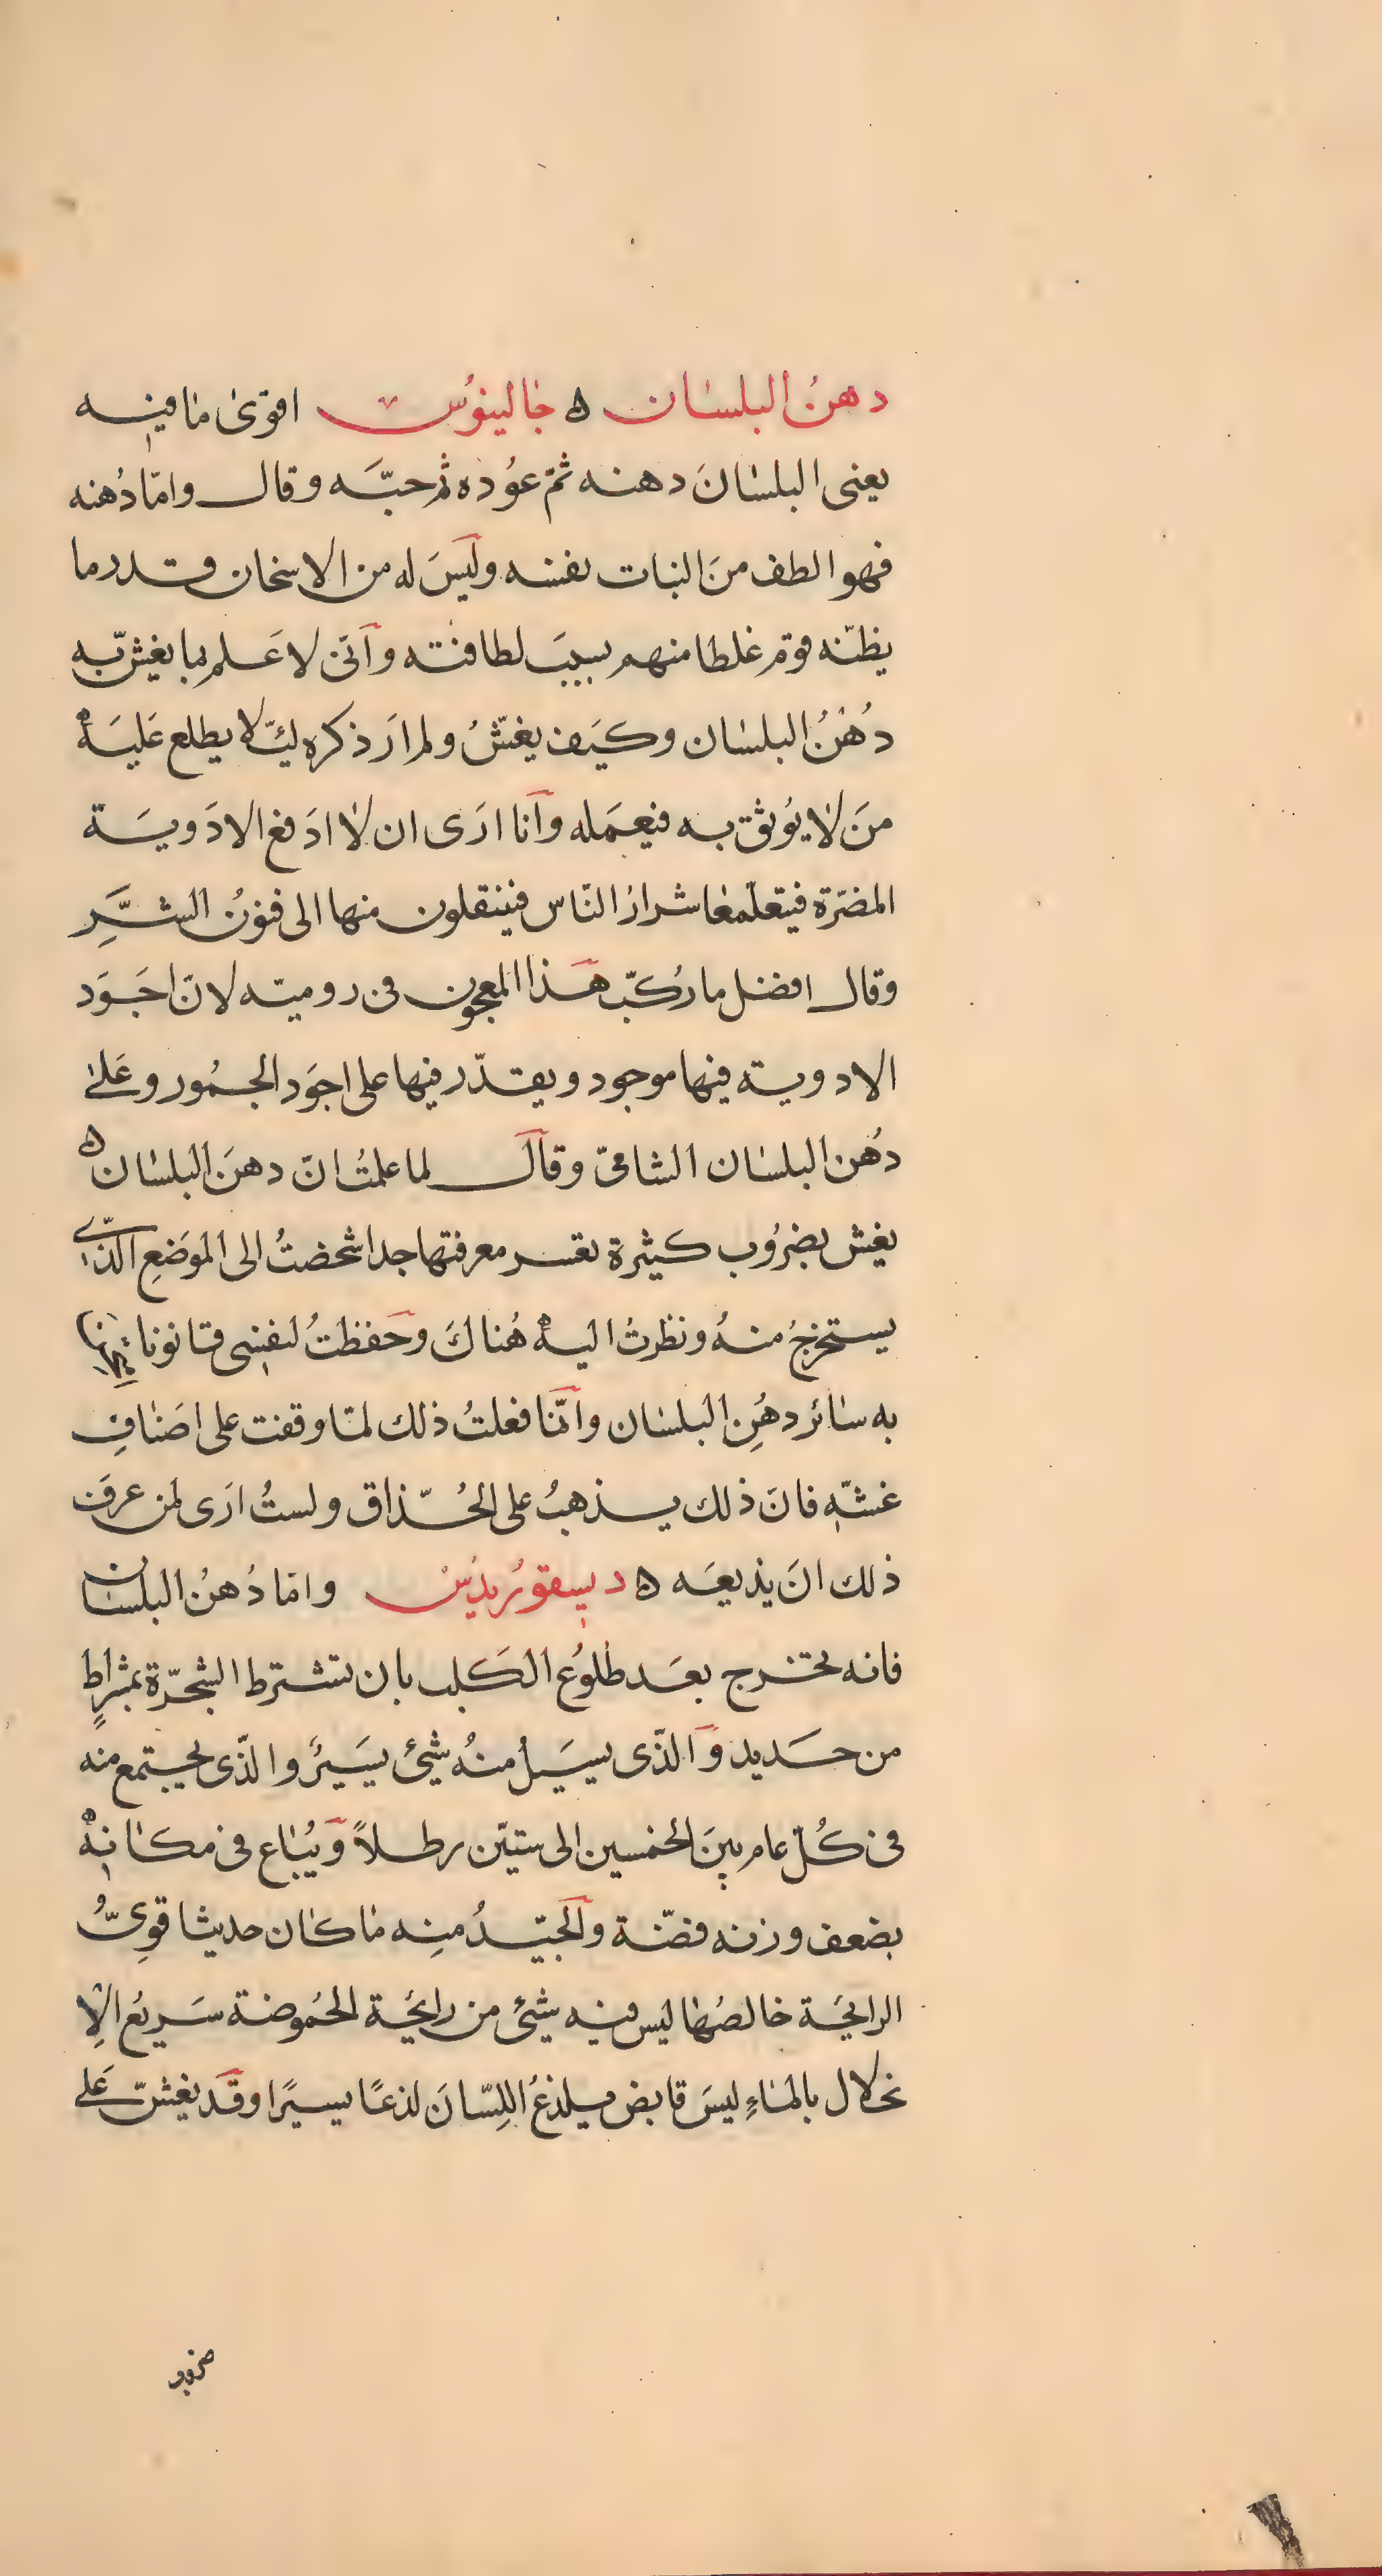 دهنُ البلسان ه جالينوُس اقوىٰ ما فيه
يعنى البلسانَ دهنه ثمّ عوُده ثم حبَّه وقال وامّا دُهنه
فهو الطف منَ النبات نفسه وليَسَ له من الاسخان قدر ما
يظنّه قوم غلطا منهم بسببَ لطافته وآنّى لاعَلم بما يغشّ به
دُهْنُ البلسان وكيَف يغشّ ولم ارَ ذكره ليّلا يطلع عَليَه
منَ لا يوُثق به فيعمَله وآنا ارَى ان لا ادَفع الادَويَة
المضرّة فيتعلّمها شرارُ النّاس فينتقلون منها الى فنونُ الشَّرِ
وقال افضل ما رُكّب هَذا المعجون فى روميّه لانّ اجَوَد
الادويه فيها موجود ويقدّر فيها على اجوَد الخمُور وعَلىٰ
دُهن البلسان الشامىّ وقآلَ لما علمتُ انّ دهنَ البلسان
يغش بضروُب كثيرة تعسر معرفتها جدا شخصتُ الى الموَضعِ الذّى
يستخرجُ منهُ ونظرتُ اليهُ هُناكَ وحَفظتُ لنفسِى قانونا
به سائر دهُنِ البلسان وآنّما فعلتُ ذلك لمّا وقفت على اصَنافِ
غشّه فانَ ذلك يذهبُ على الحُذّاق ولستُ ارَى لمن عرفَ
ذلك انَ يذيعَه ه ديسقورُيدُسْ وامّا دُهنُ البلسان
فانه يخرج بعَد طلوُع الكَلب بان تشترط الشجرّة بمشراطٍ
من حَديد وَآلذّى يسيَلُ منهُ شيئ يسَيرٌ والذّى يجتمع منه
فى كُلّ عام بينَ الخمسين الى ستّين رطلاً وَيُباع فى مكانهُ
بضعف وزنه فضّة وآلجيّدُ منِه ما كان حديثا قوِىُّ
الرايحَة خالصُها ليس فيه شيئ من رايحُة الحُموضة سَريعُ الاِ
نحلال بالماءِ ليسَ قابض يلذعُ اللِسّانَ لذعًا يسيرًا وقَد يغشّ عَلى
ضروب